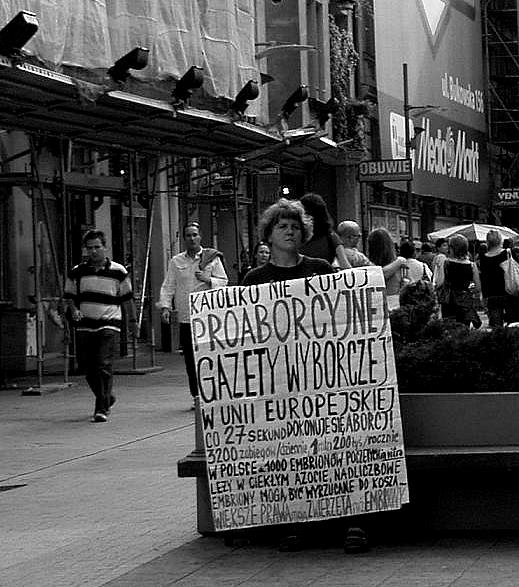 ul. Bukowska 156
Media Markt
OBUWIE
KATOLIKU NIE KUPUJ
PROABORCYJNEJ
GAZETY WYBORCZEJ"
W UNII EUROPEJSKIEJ
CO 27 SEKUND DOKONUJE SIĘ ABORCJI
3200 zabiegów/dziennie, 1 mln 200 tyś/rocznie
W POLSCE 1000 EMBRIONÓW POCZĘTYCH in vitro
LEŻY W CIEKŁYM AZOCIE, NADLICZBOWE
EMBRIONY MOGĄ BYĆ WYRZUCANE DO KOSZA...
WIĘKSZE PRAWA mają ZWIERZĘTA niż EMBRIONY